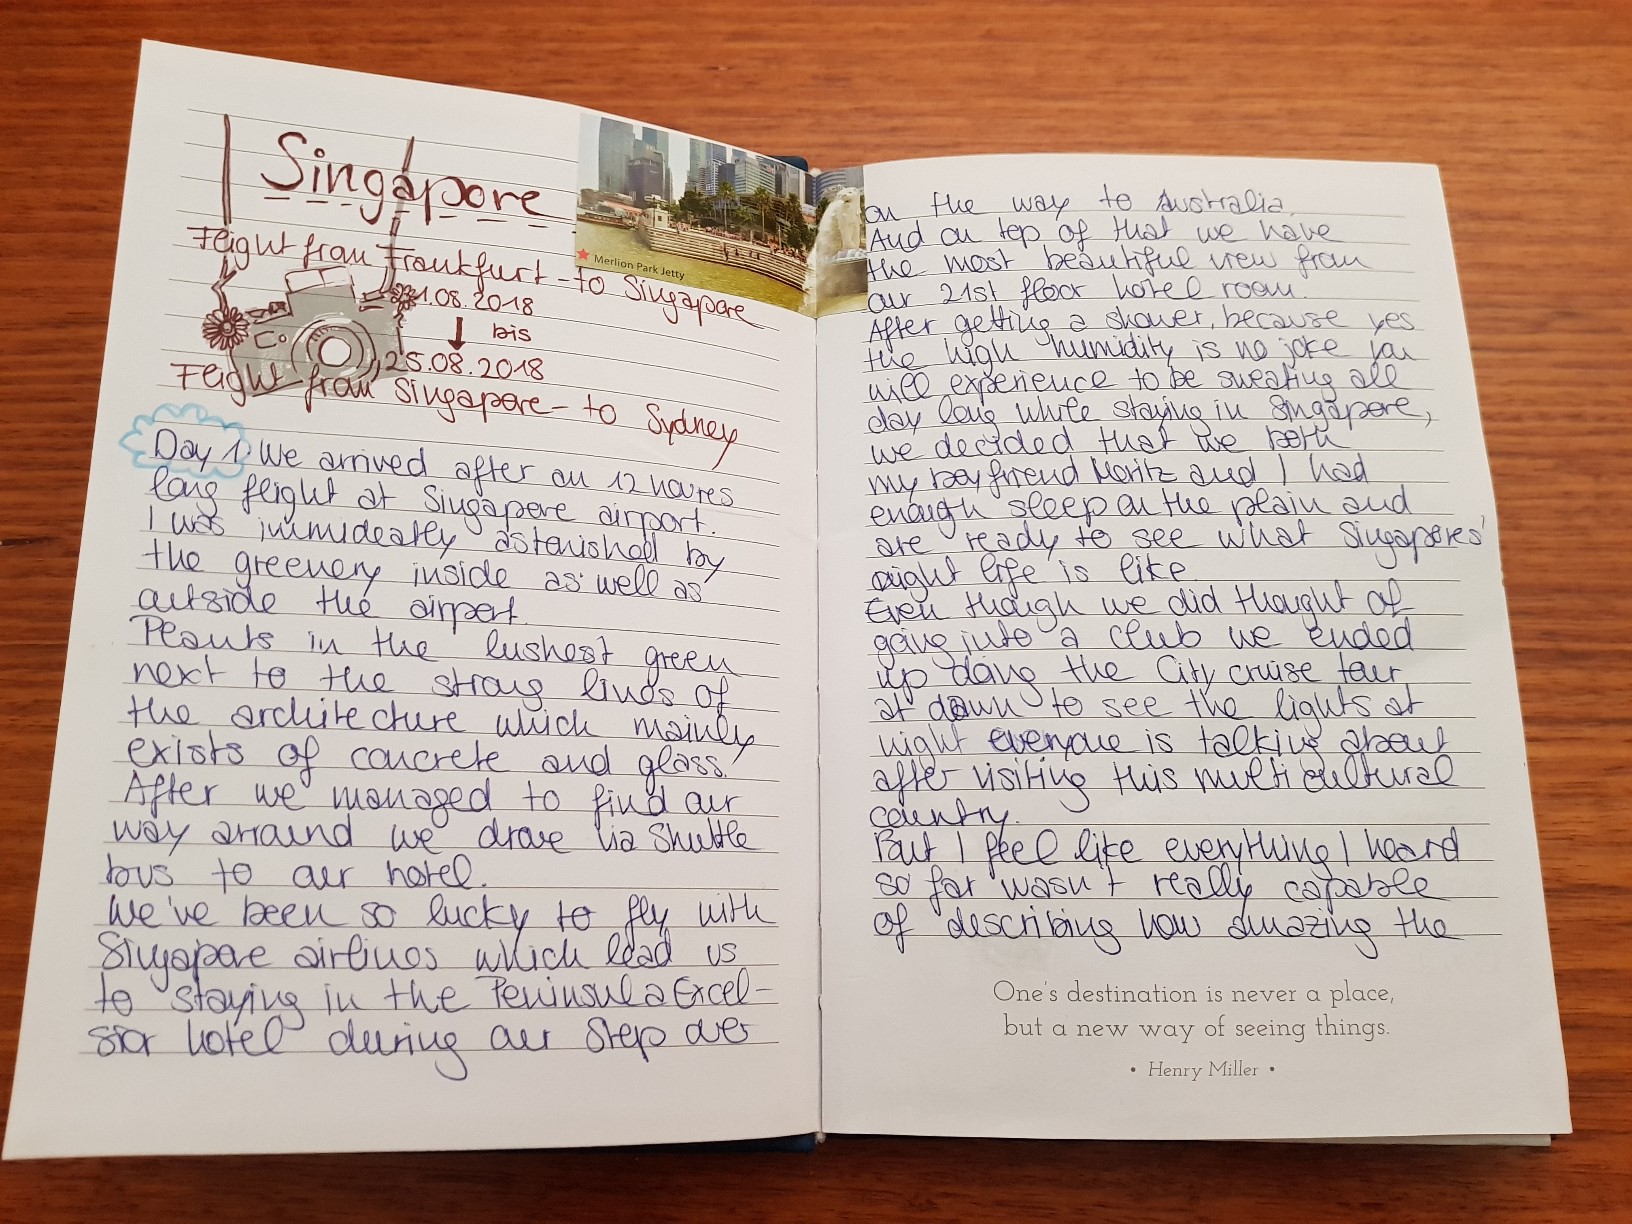 Singapore
Flight from Frankfurt - to Singapore
21.08.2018
bis
25.08.2018
Flight from Singapore - to Sydney
Merlion Park Jetty
Day 1: We arrived after an 12 houres
long flight at Singapore airport.
I was immideatly astonished by
the greenery inside as well as
outside the airport.
Plants in the lushest green
next to the strong lines of
the architecture which mainly
exists of concrete and glass.
After we managed to find our
way arround we drove via Shuttle
bus to our hotel.
We've been so lucky to fly with
Singapore airlines which lead us
to staying in the Peninsula Excel-
sior hotel during our Stop over
on the way to Australia.
And on top of that we have
the most beautiful view from
our 21st floor hotel room.
After getting a shower, because yes
the high humidity is no joke you
will experience to be sweating all
day long while staying in Singapore,
we decided that we both
my boyfriend Moritz and I had
enough sleep on the plain and
are ready to see what Singapores'
night life is like.
Even though we did thought of
going into a club we ended
up doing the City cruise tour
at down to see the lights at
night everyone is talking about
after visiting this multicultural
country.
But I feel like everything I heard
so far wasn't really capable
of describing how amazing the
One's destination is never a place,
but a new way of seeing things.
• Henry Miller •